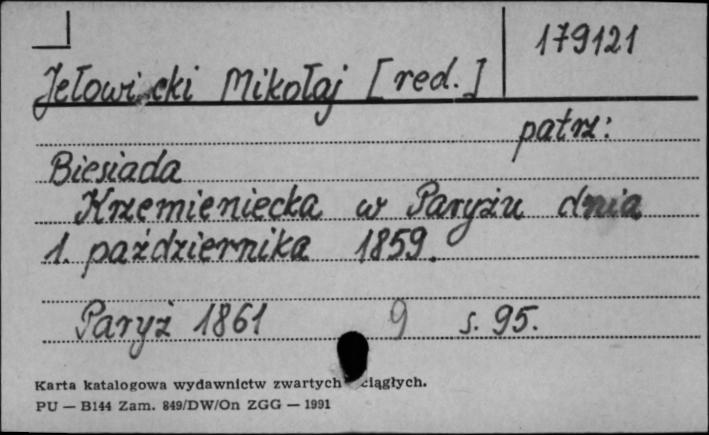 179121
Jełowicki Mikołaj [red.]
patrz:
Biesiada
Krzemieniecka w Paryżu dnia
1. października 1859.
Paryż 1861 9 s. 95.
Karta katalogowa wydawnictw zwartych ciągłych.
PU — B144 Zam. 849/DW/On ZGG — 1991